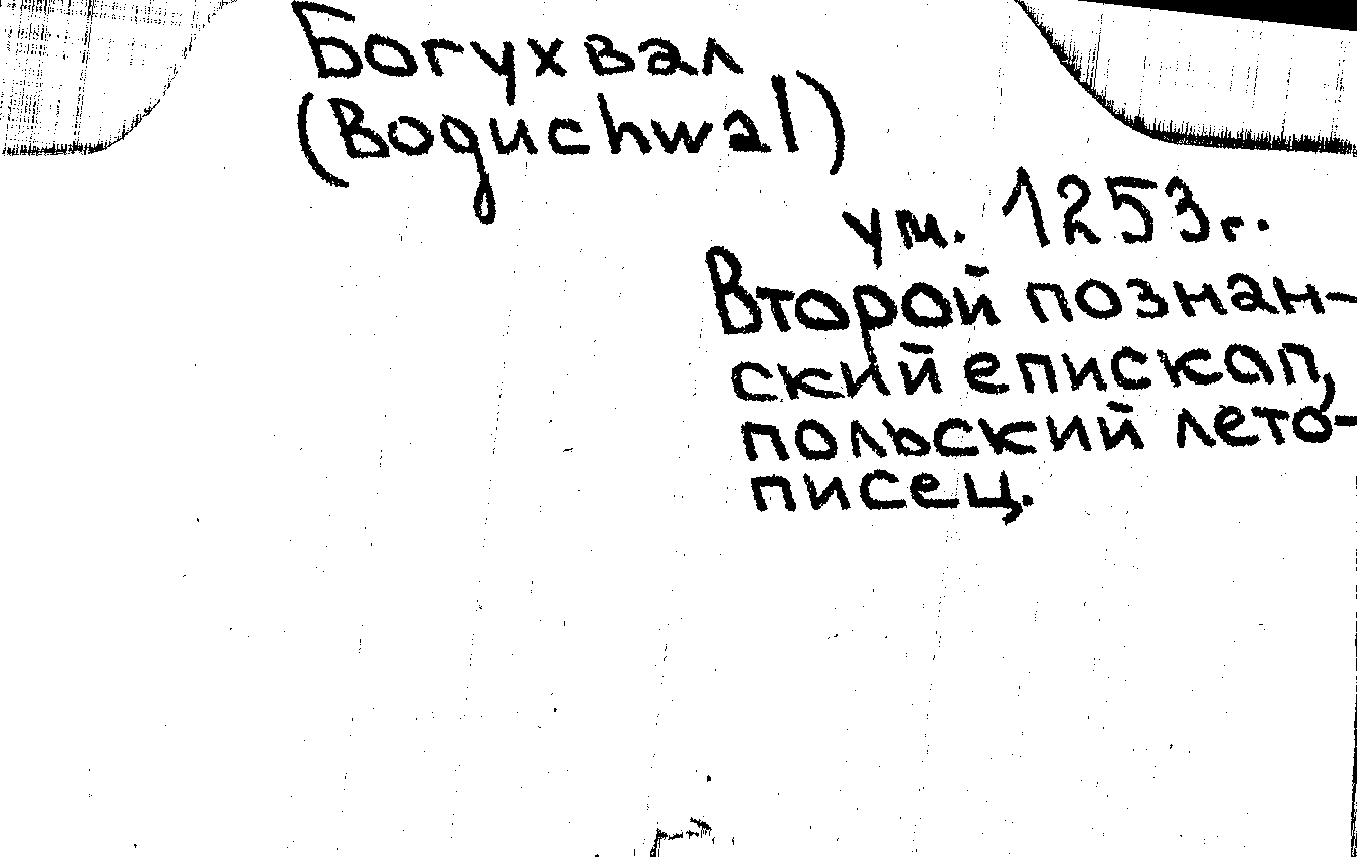 Богухвал
(Boguchwal)
ум. 1253 г.
Второй познан-
ский епископ,
польский лето-
писец.